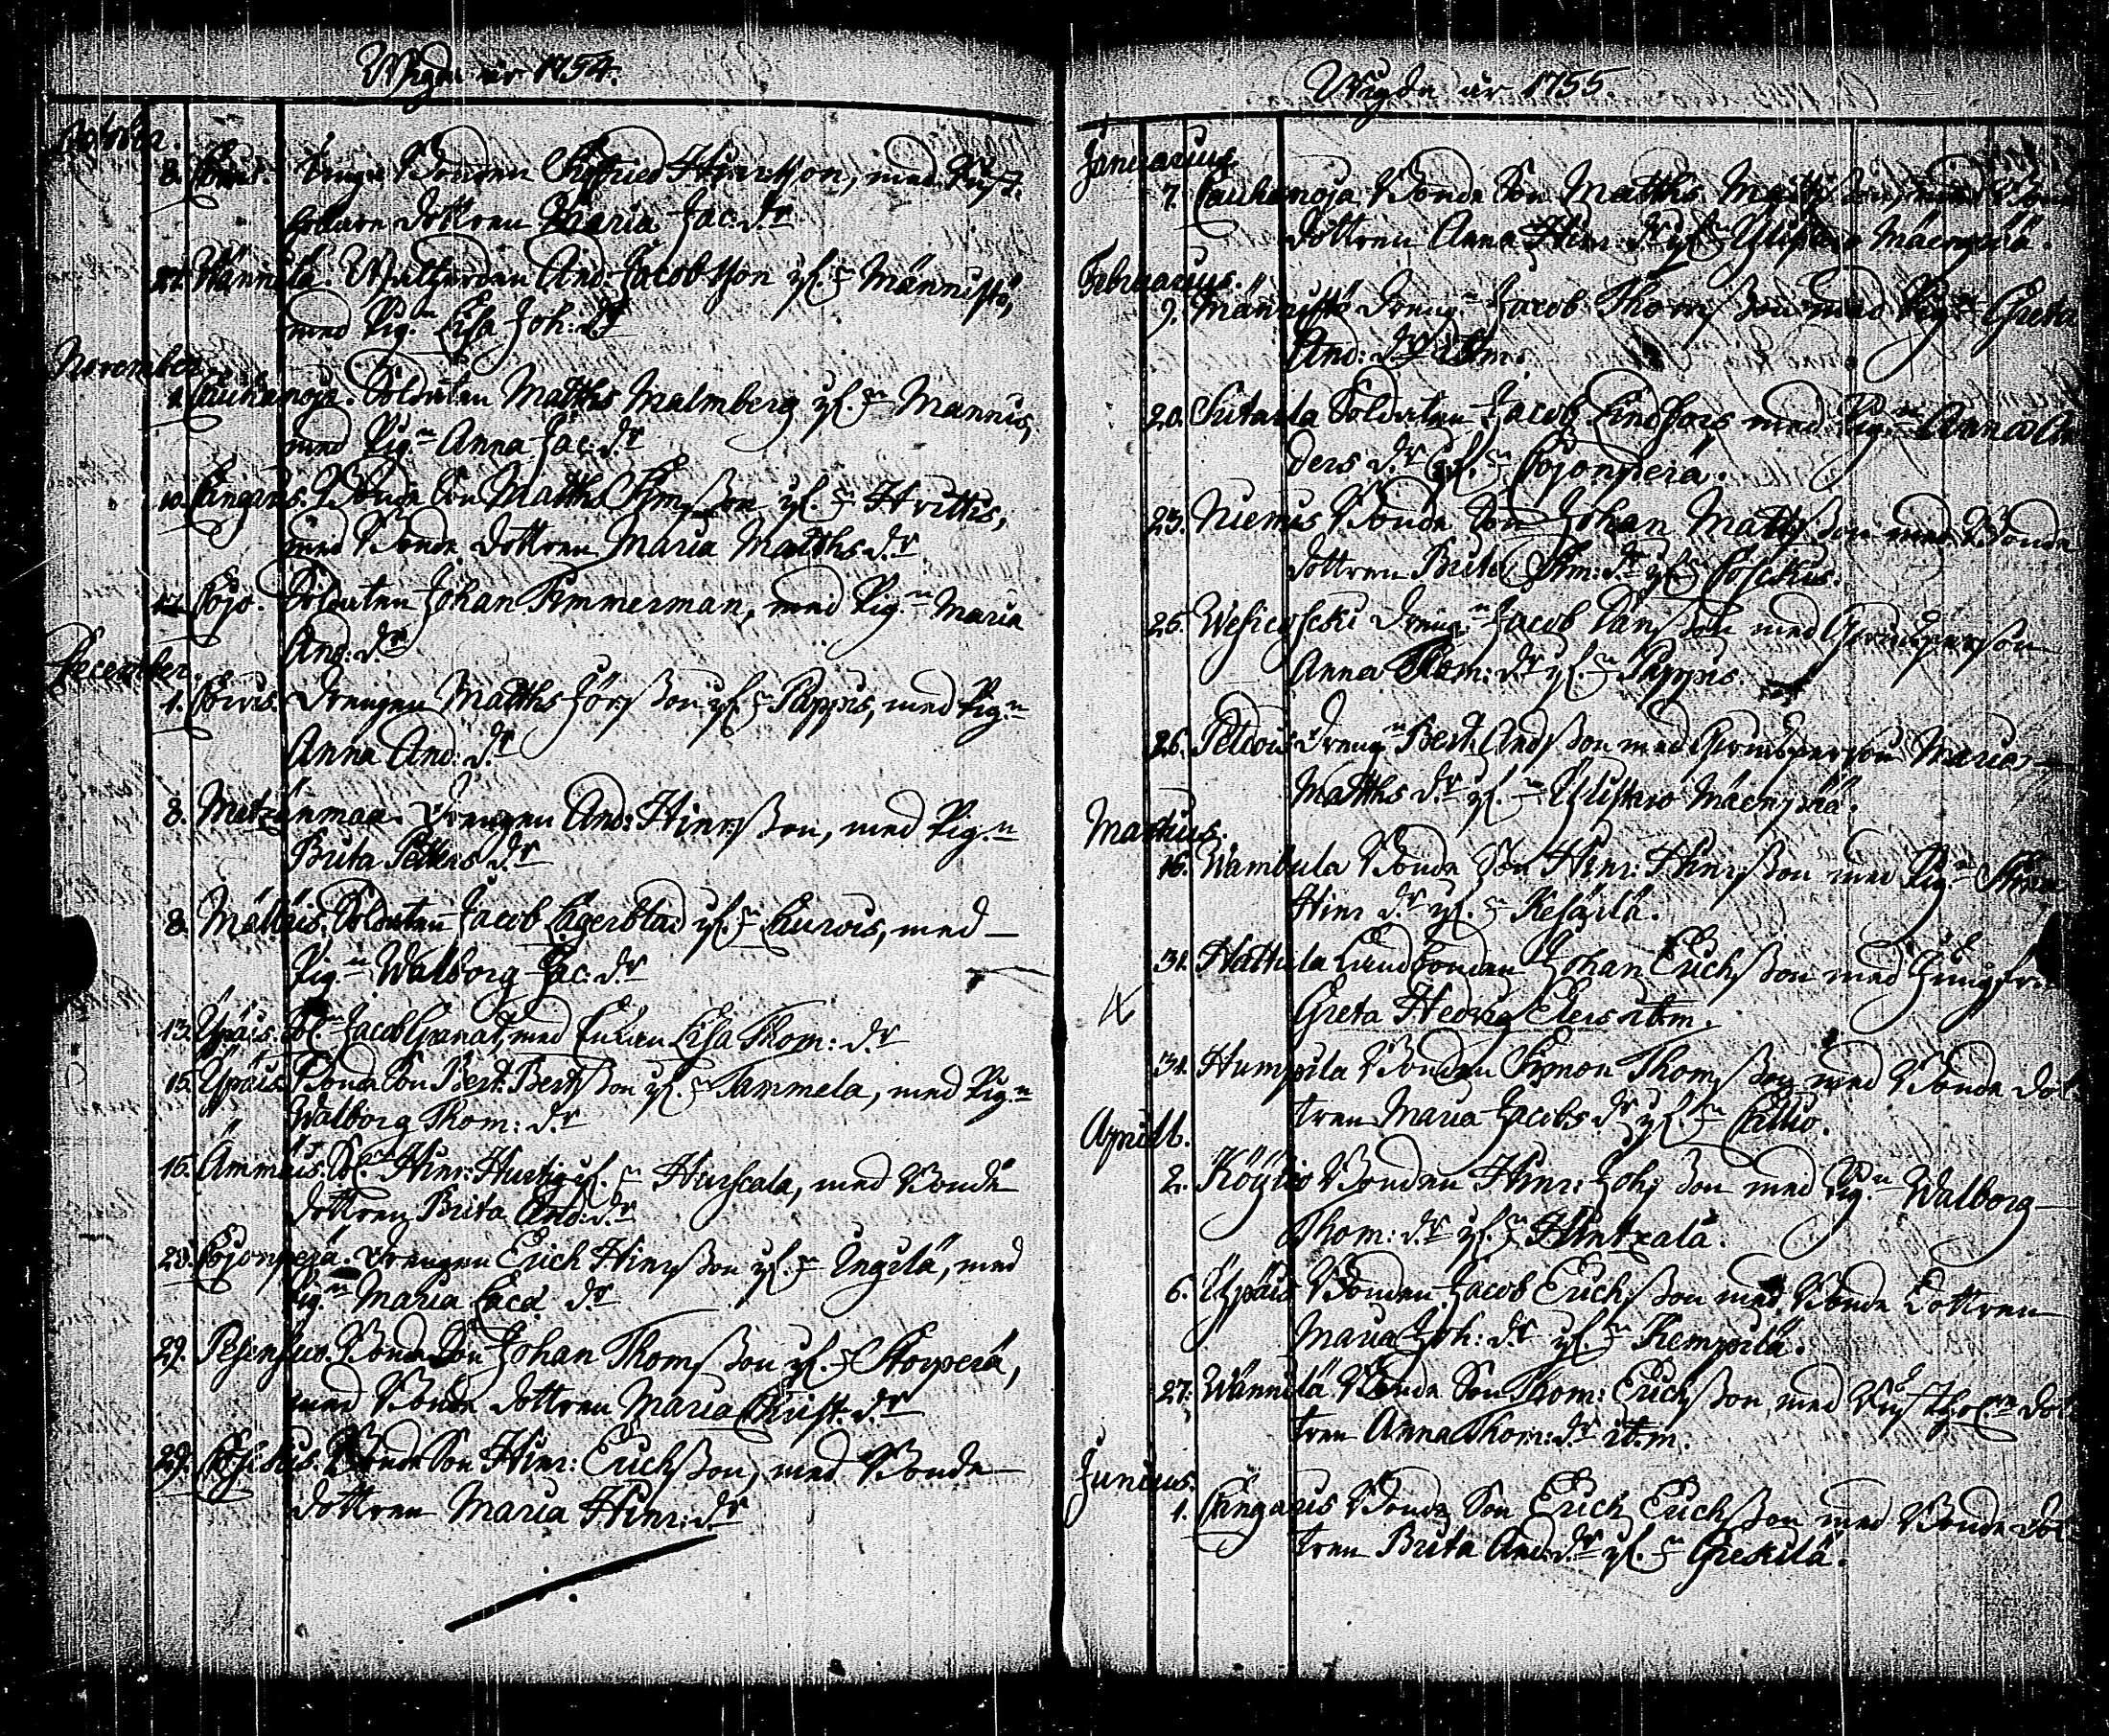 Wigde år 1754.
October.
8. Unge Bonden Sigfried Hinriksson, med Rust-
hollare dottren Maria Jac: d.r
27. Männilä. And: Jacobsson yf. Männistö,
med Pig.n Lisa Joh: d.r
November
1. Cauhanoja. Soldaten Matths Malmberg yf. Mannis,
med Pig.n Anna Jac: d.r
10. Cungarus. Bonde Son Matths Simsson yf. Heittis,
med Bonde dottren Maria Matths d.r
17. Pojo. Soldaten Johan Timmerman, med Pig.n Maria
And: d.r
December.
1. Drengen Matths Jörsson yf. Pappis, med Pig.n
Anna And: d.r
8. Metzänmaa. Drengen And: Hinrsson, med Pig.n
Brita Petters d.r
8. Mälläis. Soldaten Jacob Lagerblad yf. Laurois, med
Pig.n Walborg Jac: d.r
13. Ypäis. Sol.n Jacob Granat, med Enkan Lisa Thom: d.r
15. Ypäis. Bonde Son Bert: Bertsson yf. Tammela, med Pig.n
Walborg Thom: d.r
16. Ämmäis. Sol.n Hinr: Hurtig yf. Hurscala, med Bonde
dottren Brita And: d.r
26. Cojonperä. Drengen Erich Hinrsson yf. Ungilä, med
Pig.n Maria Caca d.r
29. Pesensuo. Bonde Son Johan Thomsson yf. Storperä,
med Bonde dottren Maria Christ: d.r
29. Coskis. Bonde Son Hinr: Erichsson, med Bonde
dottren Maria Hinr: d.r
Wigde år 1755.
Januarius
7. Cauhanoja Bonde Son Matths Mattsson, med Bonde
dottren Anna Hinr: d.r yf. Ylistaro Mäenpää.
Februarius.
9. Männistö Dreng.n Jacob Thomsson med Pig.n Greta
And: d.r itm.
20. Sutarla Soldaten Jacob Lindfors med Pig.n Anna An-
ders d.r yf. Cojonperä.
23. Niemis Bonde Son Johan Mattsson med Bonde
dottren Brita Sim: d.r yf. Coskis.
25. Wesicoscki Dreng.n Jacob Dansson med Qvinsperson
Anna Thom: d.r yf. Pappis.
26. Peltois Dreng.n Bert: Andsson med Qvinsperson Maria
Matths d.r yf. Ylistaro Mäenpää.
Martius.
16. Wambula Bonde Son Hinr: Hinrsson med Pig.n
Hinr d.r yf. Kesärlä.
31. Hattula Landbonden Johan Erichsson med Jungfru
Greta Hedvig Elers itm.
31. Humpila Bonden Simon Thomsson med Bonde dot-
tren Maria Jacobs d.r yf. Callio.
Aprill.
2. Köyliö Bonden Hinr: Johsson med Pig.n Walborg
Thom: d.r yf. Hintzala.
6. Ypäis Bonden Jacob Erichsson med Bonde dottren
Maria Joh: d.r yf. Kempilä.
27. Wännilä Bonde Son Thom: Erichsson, med dot-
tren Anna Thom: d.r itm.
Junius.
1. Cungarus Bonde Son Erich Erichsson med Bonde dot-
tren Brita And: d.r yf. Greckilä.